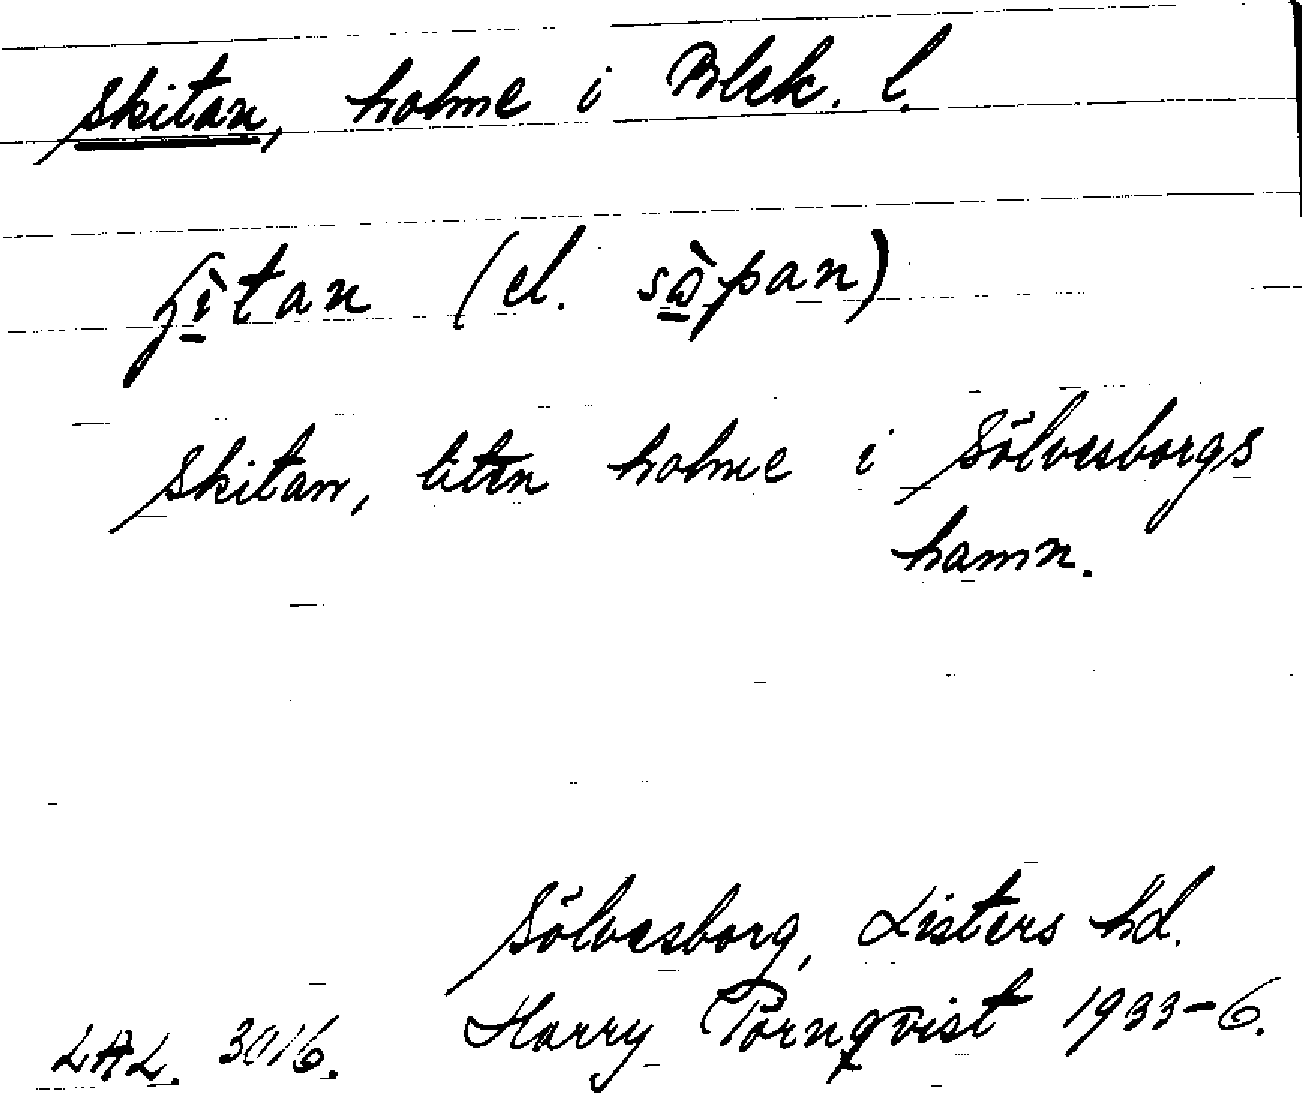 Skitan, holme i Blek. l.
ʃìtan (el. sɷ̀pan)
Skitan, liten holme i Sölvesborgs
hamn.
Sölvesborg, Listers hd.
LAL. 3016. Harry Törnqvist 1933-6.